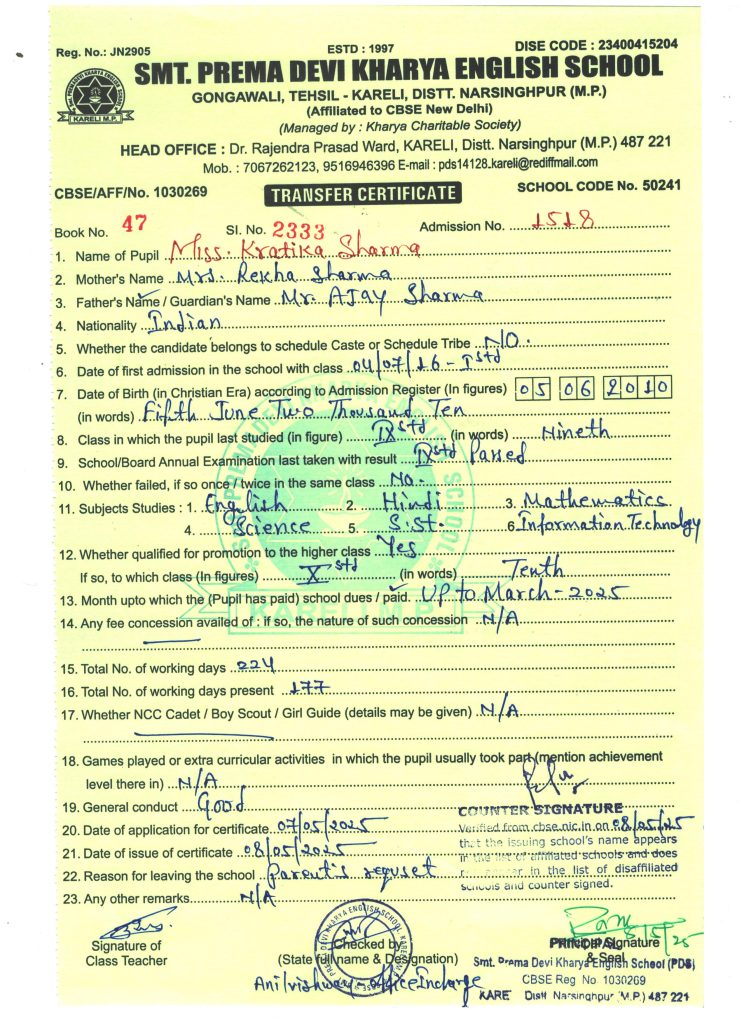 Reg. No.: JN2905
ESTD : 1997
DISE CODE : 23400415204
SMT. PREMA DEVI KHARYA ENGLISH SCHOOL
GONGAWALI, TEHSIL - KARELI, DISTT. NARSINGHPUR (M.P.)
(Affiliated to CBSE New Delhi)
(Managed by : Kharya Charitable Society)
KARELI M.P.
HEAD OFFICE : Dr. Rajendra Prasad Ward, KARELI, Distt. Narsinghpur (M.P.) 487 221
Mob. : 7067262123, 9516946396 E-mail : pds14128.kareli@rediffmail.com
CBSE/AFF/No. 1030269
TRANSFER CERTIFICATE
SCHOOL CODE No. 50241
Book No. 47 Sl. No. 2333 Admission No. 1518
1. Name of Pupil Miss. Kratika Sharma
2. Mother's Name Mrs. Rekha Sharma
3. Father's Name / Guardian's Name Mr. AJAY Sharma
4. Nationality Indian
5. Whether the candidate belongs to schedule Caste or Schedule Tribe NO.
6. Date of first admission in the school with class 04/07/16 - Istd
7. Date of Birth (in Christian Era) according to Admission Register (In figures) 05 06 2010
(in words) Fifth June Two Thousand Ten
8. Class in which the pupil last studied (in figure) IXstd (in words) Nineth
9. School/Board Annual Examination last taken with result IXstd Passed
10. Whether failed, if so once / twice in the same class No.
11. Subjects Studies : 1. English 2. Hindi 3. Mathematics
4. Science 5. S.st. 6. Information Technology
12. Whether qualified for promotion to the higher class Yes
If so, to which class (In figures) Xstd (in words) Tenth
13. Month upto which the (Pupil has paid) school dues / paid. UP to March-2025
14. Any fee concession availed of : if so, the nature of such concession N/A
15. Total No. of working days 224
16. Total No. of working days present 177
17. Whether NCC Cadet / Boy Scout / Girl Guide (details may be given) N/A
18. Games played or extra curricular activities in which the pupil usually took part (mention achievement
level there in) N/A
19. General conduct Good
20. Date of application for certificate 07/05/2025
21. Date of issue of certificate 08/05/2025
22. Reason for leaving the school Parent's requset
23. Any other remarks N/A
COUNTER SIGNATURE
Verified from cbse.nic.in on 08/05/25
that the issuing school's name appears
in the list of affiliated schools and does
in the list of disaffiliated
schools and counter signed.
Signature of
Class Teacher
Checked by
(State full name & Designation)
Anil vishway - office Incharge
8/5/25
PRINCIPAL Signature
& Seal
Smt. Prema Devi Kharya English School (PDS)
CBSE Reg No 1030269
KARE Distt Narsinghpur (M.P.) 487 221